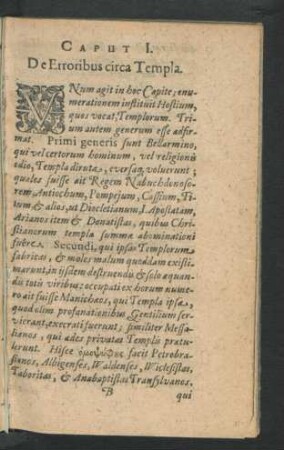 CAPUT I.
De Erroribus circa Templa.
VNum agit in hoc Capite; enu-
merationem instituit Hostium,
ques vocat, Templorum. Tri-
um autem generum esse adfir-
mat. Primi generis sunt Bellarmino,
qui vel certorum hominum, vel religionis
odio, Templa diruta, eversaq, voluerunt;
quales fuisse ait Regem Nabuchdonoso-
rem, Antiochum, Pompejum, Cassium, Ti-
tum & alios, ut Diocletianum, Apostatam,
Arianos item & Donatistas, quibus Chri-
stianorum templa summæ abominationi
fuere. Secundi, qui ipsas Templorum
fabricas, & moles malum quoddam existi-
marunt, in iisdem destruendis & solo æquan-
dis totis viribus occupati ex horum nume-
ro ait fuisse Manichæos, qui Templa ipsa,
quod olim profanationibus Gentilium ser-
vierant, execrati fuerunt; similiter Messa-
lianos, qui ædes privatas Templis prætu-
lerunt. Hisce ὁμοψήφους facit Petrobru-
sianos, Albigenses, Waldenses, Wiclefistas,
Taboritas, & Anabaptistas Transylvanos,
B qui